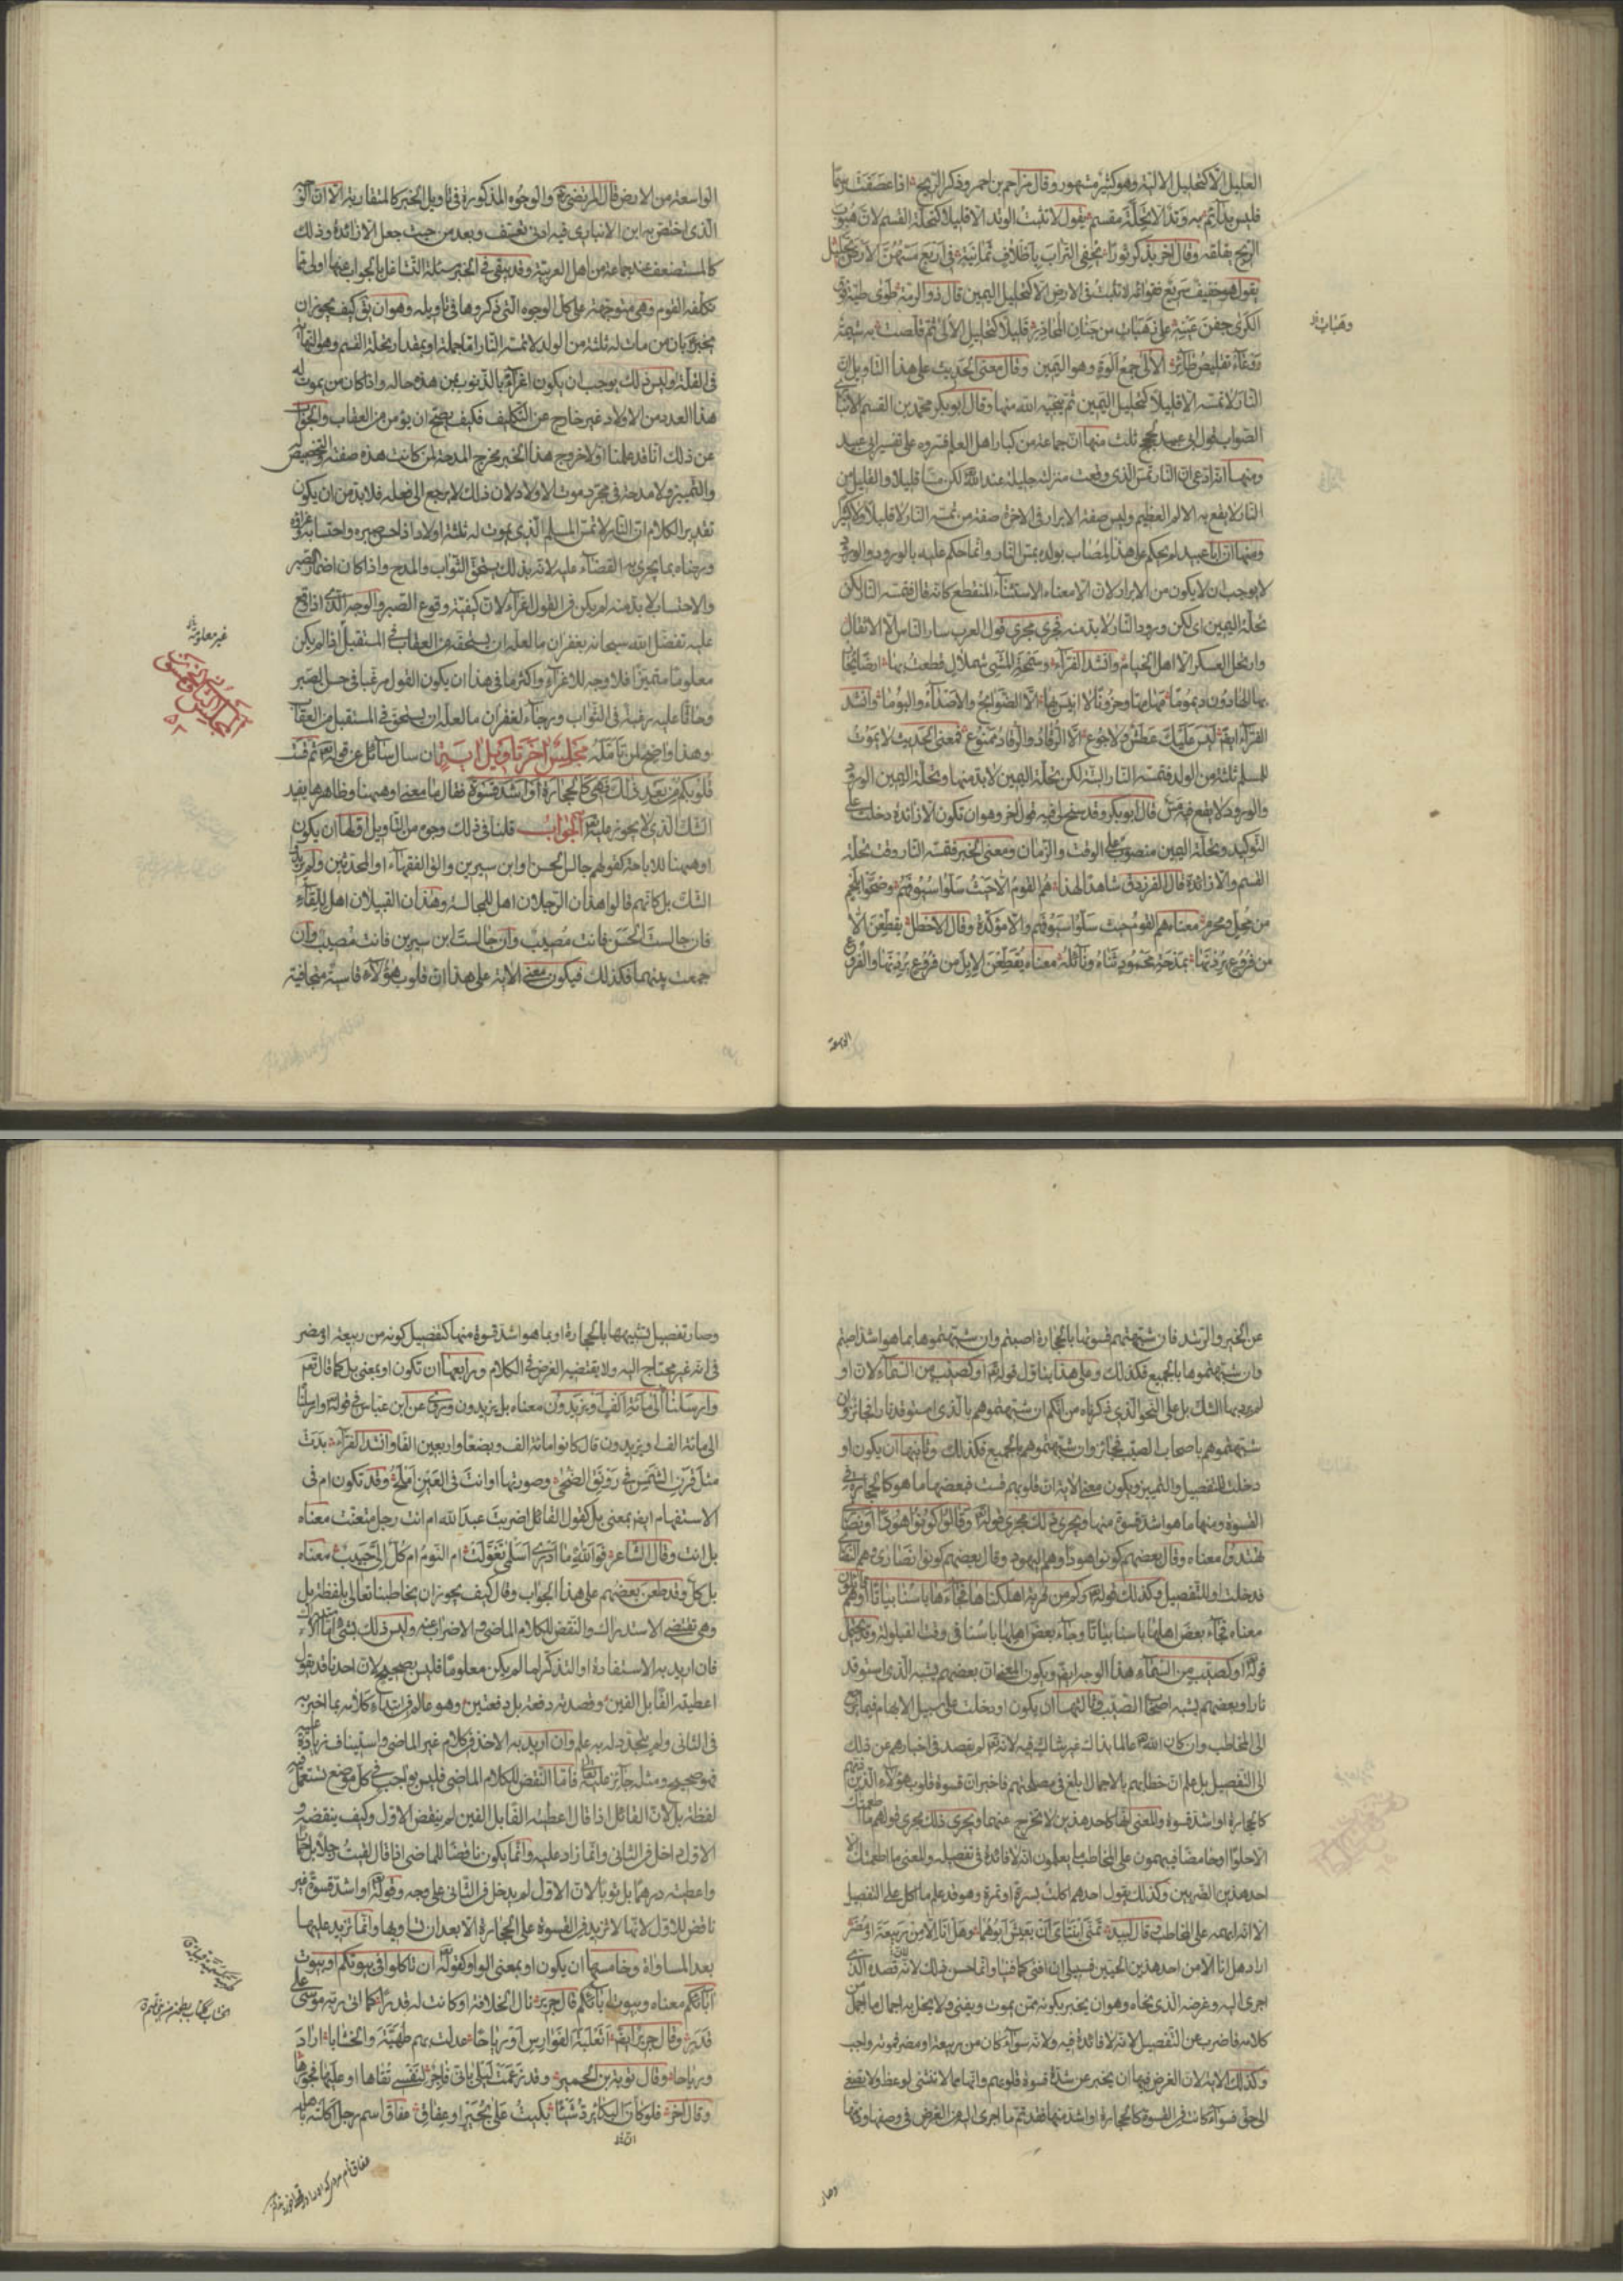 العليل الا كتحليل الالية وهو كثير مشهور وقال مزاحم بن احمر وذكر الريح اذا عصفت برما
فليس بدائم به وتد الا تحلة مقسم يقول لا تثبت الوتد الا قليلا كتحلة القسم لان هبوب
الريح يقلقه وقال اخر يذكر ثورا يخفى التراب باظلاف ثمانية في اربع مسهن الارض تحليل
يقول هو خفيف سريع فقوائمه لا تثبت في الارض الا كتحليل اليمين قال ذو الرمة طوى طيه فوق
الكرى جفن عينه على رهبات من جنان المحاذر قليلا كتحليل الالى ثم قلصت به شيمة
روعاء تقليص طائر الالى جمع الوة وهو اليمين وقال معنى الحديث على هذا التاويل ان
النار لا تمسه الا قليلا كتحليل اليمين ثم ينجيه الله منها وقال ابو بكر محمد بن القسم الانباري
الصواب قول ابي عبيد لحجج ثلث منها ان جماعة من كبار اهل العلم فسروه على تفسير ابي عبيد
ومنها انه ادعى ان النار تمس الذي وقعت منزلته جليلة عند الله لكن مسا قليلا والقليل من
النار لا يقع به الالم العظيم وليس صفة الابرار في الاخرة صفة من تمسه النار لا قليلا ولا كثيرا
ومنها ان ابا عبيد لم يحكم على هذا المصاب بولده بمس النار وانما حكم عليه بالورود والورود
لا يوجب ان لا يكون من الابرار لان الا معناه الاستثناء المنقطع كانه قال فتمسه النار لكن
تحلة اليمين اى لكن ورود النار لا بد منه فجرى مجرى قول العرب سار الناس الا الاثقال
وارتحل العسكر الا اهل الخيام وانشد الفراء وسمحة المشى شملال قطعت بها ارضا يحار
بها الهادون ديموما مهامها وحزونا لا انيس بها الا الصوائح والاصداء والبوما وانشد
الفراء ايضا ليس عليك عطش ولا جوع الا الرقاد والرقاد ممنوع فمعنى الحديث لا يموت
للمسلم ثلثة من الولد فتمسه النار البتة لكن تحلة اليمين لا بد منها وتحلة اليمين الورود
والورود لا يقع فيه مس قال ابو بكر وقد سنح لى فيه قول اخر وهو ان تكون الا زائدة دخلت على
التوكيد وتحلة اليمين منصوب على الوقت والزمان ومعنى الخبر فتمسه النار وقت تحلة
القسم والا زائدة قال الفرزدق شاهدا لهذا هم القوم الا حيث سلوا سيوفهم وضحوا بلحم
من محل ومحرم معناه هم القوم حيث سلوا سيوفهم والا مؤكدة وقال الاخطل يقطعن الا
من فروع يردنها بمدحة محمود ثناه ونائله معناه يقطعن الابل من فروع يردنها والفروع
الواسعة
وهبات
الواسعة من الارض قال المرتضى والوجوه المذكورة في تاويل الخبر كالمتقاربة الا ان الوجه
الذى اختص به ابن الانبارى فيه ادنى تعسف وبعد من حيث جعل الا زائدة وذلك
كالمستضعف عند جماعة من اهل العربية وقد يبقى في الخبر مسئلة التشاغل بالجواب عنها اولى مما
تكلفه القوم وهى متوجهة على كل الوجوه التى ذكروها في تاويله وهو ان يق كيف يجوز ان
يخبر بان من مات له ثلثة من الولد لا تمسه النار اما جملة او بمقدار تحلة القسم وهو النهاية
في القلة اوليس ذلك يوجب ان يكون اغراء بالذنوب لمن هذه حاله واذا كان من يموت له
هذا العدد من الاولاد غير خارج عن التكليف فكيف يصح ان يؤمن من العقاب والجواب
عن ذلك انا قد علمنا اولا خروج هذا الخبر مخرج المدحة لمن كانت هذه صفته والتخصيص له
والتمييز ولا مدحة في مجرد موت الاولاد لان ذلك لا يرجع الى فعله فلا بد من ان يكون
تقدير الكلام ان النار لا تمس المسلم الذى يموت له ثلثة اولاد اذا حسن صبره واحتسابه وعزاؤه
ورضاه بما يجرى به القضاء عليه لانه بذلك يستحق الثواب والمدح واذا كان اضمار الصبر
والاحتساب لا بد منه لم يكن في القول اغراء لان كيفية وقوع الصبر والوجه الذى اذا وقع
عليه تفضل الله سبحانه بغفران ما لعله ان يستحقه من العقاب في المستقبل اذا لم يكن
معلوما متميزا فلا وجه للاغراء واكثر ما في هذا ان يكون القول مرغبا في حسن الصبر
وحاثا عليه رغبة في الثواب ورجاء لغفران ما لعله ان يستحق في المستقبل من العقاب
وهذا واضح لمن تامله مجلس اخر تاويل اية ان سال سائل عن قوله تع ثم قست
قلوبكم من بعد ذلك فهى كالحجارة او اشد قسوة فقال ما معنى او هيهنا وظاهرها يفيد
الشك الذى لا يجوز عليه تع الجواب قلنا في ذلك وجوه من التاويل اولها ان يكون
او هيهنا للاباحة كقولهم جالس الحسن وابن سيرين والق الفقهاء او المحدثين ولم يريدوا
الشك بل كانهم قالوا هذان الرجلان اهل للمجالسة وهذان القبيلان اهل للقاء
فان جالست الحسن فانت مصيب وان جالست ابن سيرين فانت مصيب وان
جمعت بينهما فكذلك فيكون معنى الاية على هذا ان قلوب هؤلاء قاسية متجافية
غير معلومة
عن الخير والرشد فان شبهتم قسوتها بالحجارة اصبتم وان شبهتموها بما هو اشد اصبتم
وان شبهتموها بالجميع فكذلك وعلى هذا يتاول قوله تع او كصيب من السماء لان او
لم يرد بها الشك بل على النحو الذى ذكرناه من انكم ان شبهتموهم بالذى استوقد نارا فجائز وان
شبهتموهم باصحاب الصيب فجائز وان شبهتموهم بالجميع فكذلك وثانيها ان يكون او
دخلت للتفصيل والتمييز ويكون معنى الاية ان قلوبهم قست فبعضها ما هو كالحجارة في
القسوة ومنها ما هو اشد قسوة منها ويجرى ذلك مجرى قوله تع وقالوا كونوا هودا او نصارى
تهتدوا معناه وقال بعضهم كونوا هودا وهم اليهود وقال بعضهم كونوا نصارى وهم النصارى
فدخلت او للتفصيل وكذلك قوله تع وكم من قرية اهلكناها فجاءها باسنا بياتا او هم قائلون
معناه فجاء بعض اهلها باسنا بياتا وجاء بعض اهلها باسنا في وقت القيلولة وقد يحتمل
قوله تع او كصيب من السماء هذا الوجه ايضا ويكون المعنى ان بعضهم يشبه الذى استوقد
نارا وبعضهم يشبه اصحاب الصيب وثالثها ان يكون او دخلت على سبيل الابهام فيما يرجع
الى المخاطب وان كان الله تع عالما بذلك غير شاك فيه لانه تع لم يقصد في اخبارهم عن ذلك
الى التفصيل بل علم ان خطابهم بالاجمال ابلغ في مصلحتهم فاخبر ان قسوة قلوب هؤلاء الذين ذمهم
كالحجارة او اشد قسوة والمعنى انها كاحد هذين لا يخرج عنهما ويجرى ذلك مجرى قولهم ما اطعمتك
الا حلوا او حامضا فيبهمون على المخاطب ما يعلمون انه لا فائدة في تفصيله والمعنى ما اطعمتك الا
احد هذين الضربين وكذلك يقول احدهم اكلت بسرة او تمرة وهو قد علم ما اكل على التفصيل
الا انه ابهمه على المخاطب وقال لبيد تمنى ابنتاى ان يعيش ابوهما وهل انا الا من ربيعة او مضر
اراد هل انا الا من احد هذين الحيين فسبيلى ان افنى كما فنيا وانما حسن ذلك لان قصده الذى
اجرى اليه وغرضه الذى نحاه وهو ان يخبر بكونه ممن يموت ويفنى ولا يخل به اجمال ما اجمل من
كلامه فاضرب عن التفصيل لانه لا فائدة فيه ولانه سواء كان من ربيعة او مضر فموته واجب
وكذلك الاية لان الغرض فيها ان يخبر عن شدة قسوة قلوبهم وانها مما لا تنثنى لوعظ ولا تصغى
الى حق فسواء كانت في القسوة كالحجارة او اشد منها فقد تم ما اجرى اليه من الغرض في وصفها وذمها
وصار
وصار تفصيل تشبيهها بالحجارة او بما هو اشد قسوة منها كتفصيل كونه من ربيعة او مضر
في انه غير محتاج اليه ولا يقتضيه الغرض في الكلام ورابعها ان تكون او بمعنى بل كما قال تع
وارسلناه الى مائة الف او يزيدون معناه بل يزيدون وروى عن ابن عباس في قوله تع وارسلناه
الى مائة الف او يزيدون قال كانوا مائة الف وبضعا واربعين الفا وانشد الفراء بدت
مثل قرن الشمس في رونق الضحى وصورتها او انت في العين املح وقد تكون ام في
الاستفهام ايضا بمعنى بل كقول القائل اضربت عبد الله ام انت رجل متعنت معناه
بل انت وقال الشاعر فوالله ما ادرى اسلمى تغولت ام النوم ام كل الى حبيب معناه
بل كل وقد طعن بعضهم على هذا الجواب وقال كيف يجوز ان يخاطبنا تعالى بلفظة بل
وهى تقتضى الاستدراك والنقض للكلام الماضى والاضراب عنه وليس ذلك بشئ اما الاستدراك
فان اريد به الاستفادة او التذكر لما لم يكن معلوما فليس بصحيح لان احدنا قد يقول
اعطيته الفا بل الفين وقصدته دفعة بل دفعتين وهو عالم في ابتداء كلامه بما اخبر به
في الثانى ولم يتجدد له به علم وان اريد به الاخذ في كلام غير الماضى واستيناف زيادة عليه
فهو صحيح ومثله جائز عليه تعالى فاما النقض للكلام الماضى فليس بواجب في كل موضع تستعمل فيه
لفظة بل لان القائل اذا قال اعطيته الفا بل الفين لم ينقض الاول وكيف ينقضه و
الاول داخل في الثانى وانما زاد عليه وانما يكون ناقضا للماضى اذا قال لقيت رجلا بل حمارا
واعطيته درهما بل ثوبا لان الاول لم يدخل في الثانى على وجه وقوله تع او اشد قسوة غير
ناقض للاول لانها لا تزيد في القسوة على الحجارة الا بعد ان تساويها وانما تزيد عليها
بعد المساواة وخامسها ان يكون او بمعنى الواو كقوله تع ان تاكلوا في بيوتكم او بيوت
آبائكم معناه وبيوت آبائكم قال جرير نال الخلافة او كانت له قدرا كما اتى ربه موسى على
قدر وقال جرير ايضا اثعلبة الفوارس او رياحا عدلت بهم طهية والخشابا اراد
ورياحا وقال توبة بن الحمير وقد زعمت ليلى بانى فاجر لنفسى تقاها او عليها فجورها
وقال اخر فلو كان البكاء يرد شيئا بكيت على بجير او عفاق عفاق اسم رجل اكلته باهلة